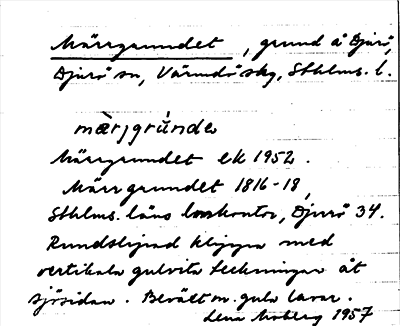 Märrgrundet, grund å Djurö,
Djurö sn, Värmdö skg, Sthlms. l.
mær̀jgrúnde
Märrgrundet ek 1952.
Märrgrundet 1816-18,
Sthlms. läns lmkontor, Djurö 34.
Rundslipad klippa med
vertikala gulvita teckningar åt
sjösidan. Bevält m. gula lavar.
Lena Moberg 1957